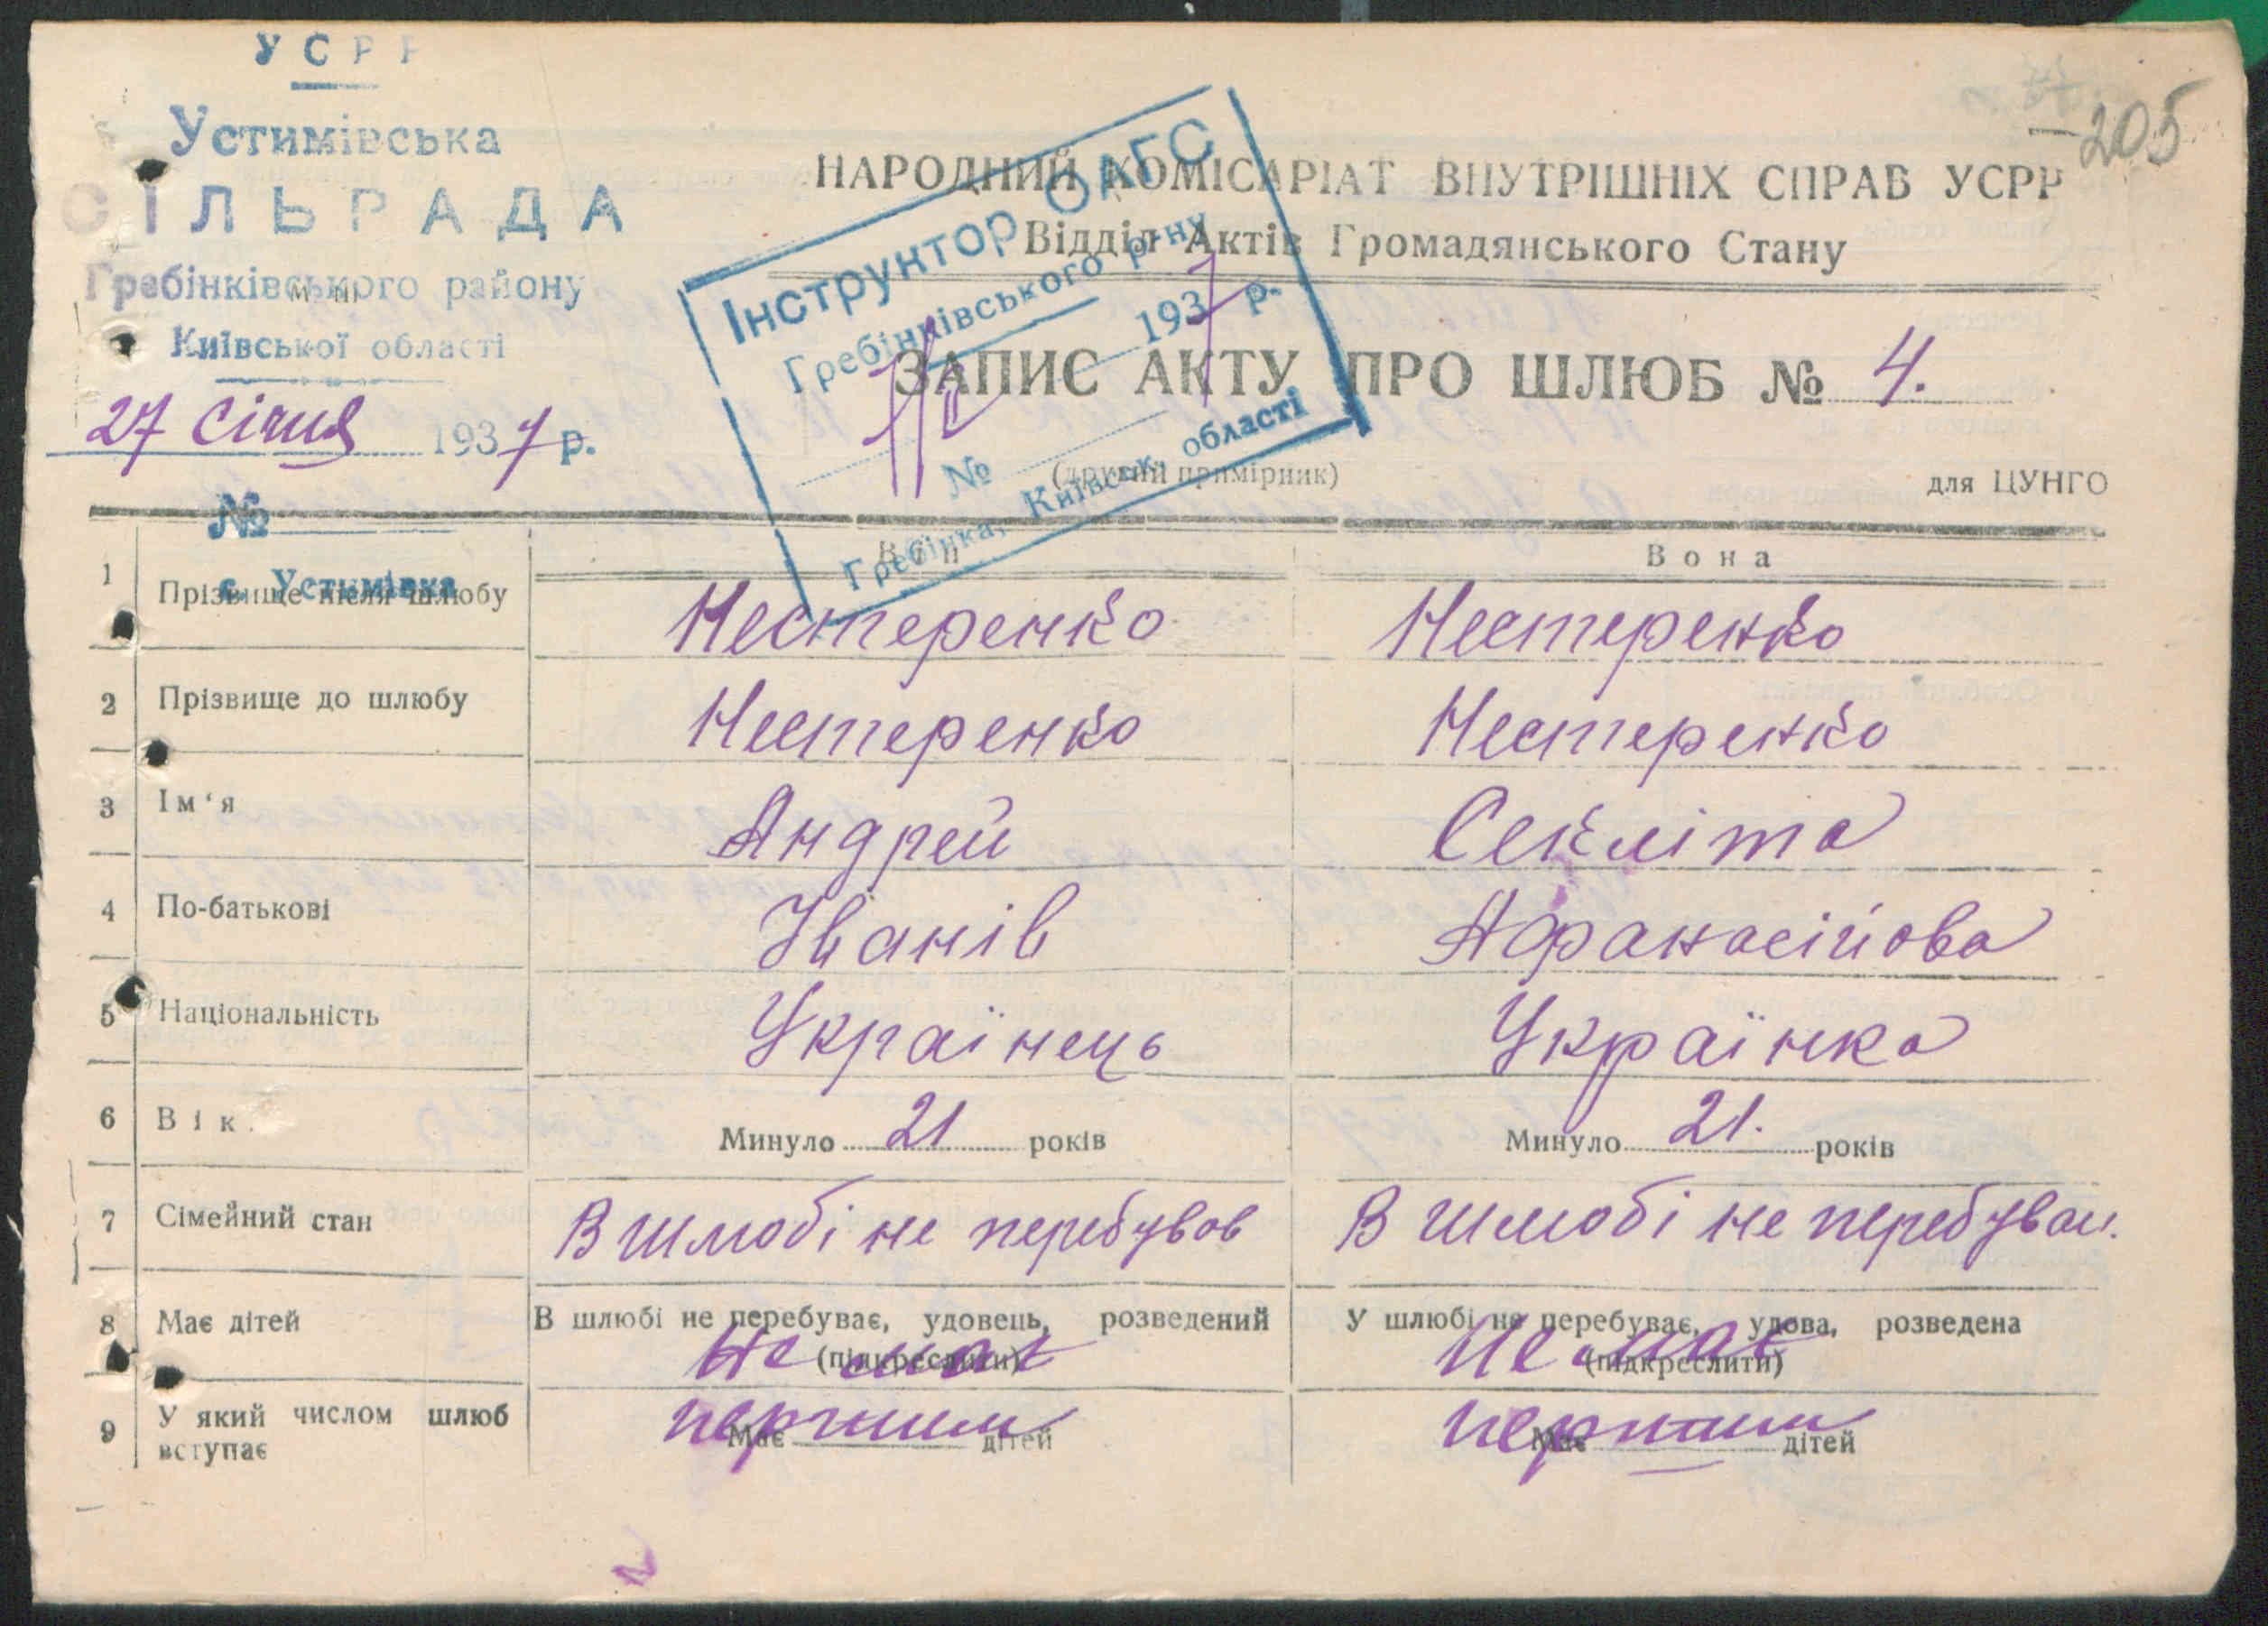 УСРР
Устимівська
СІЛЬРАДА
Гребінківського району
Київської області
27 січня 1937 р.
№
с. Устимівка
205
НАРОДНИЙ КОМІСАРІАТ ВНУТРІШНІХ СПРАВ УСРР
Відділ Актів Громадянського Стану
ЗАПИС АКТУ ПРО ШЛЮБ № 4.
(другий примірник)
для ЦУНГО
Інструктор ОАГС
Гребінківського р-ну
1937 р.
№
Гребінка, Київськ. області
Він Вона
1 Прізвище після шлюбу Нестеренко Нестеренко
2 Прізвище до шлюбу Нестеренко Нестеренко
3 Ім‘я Андрей Секліта
4 По-батькові Іванів Афанасійова
5 Національність Українець Українка
6 Вік Минуло 21 років Минуло 21. років
7 Сімейний стан В шлюбі не перебував В шлюбі не перебувал.
8 Має дітей В шлюбі не перебуває, удовець, розведений У шлюбі не перебуває, удова, розведена
(підкреслити) (підкреслити)
Не має Не має
9 У який числом шлюб вступає першим першим
Має дітей Має дітей